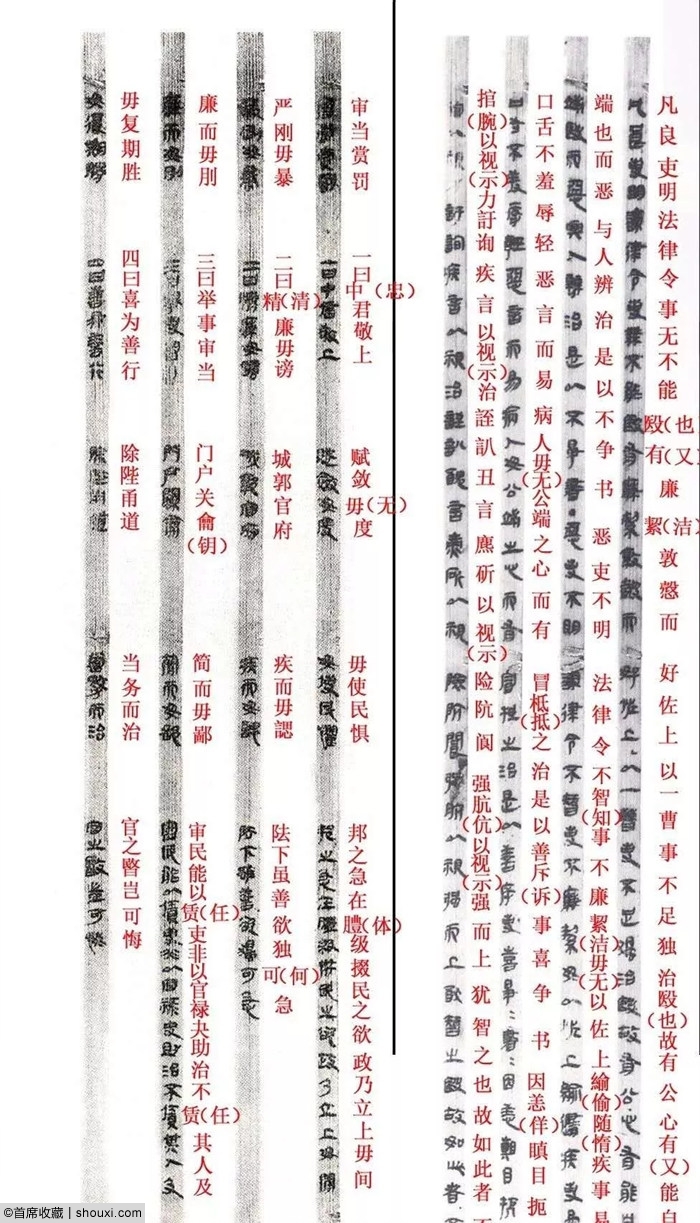 凡良吏明法律令事无不能殹（也）有（又）廉絜（洁）敦慤而好佐上以一曹事不足独治殹（也）故有公心有（又）能自
端也而恶与人辨治是以不争书恶吏不明法律令不智（知）事不廉絜（洁）毋（无）以佐上緰（偷）随（惰）疾事易
口舌不羞辱轻恶言而易病人毋（无）公端之心而有冒柢（抵）之治是以善斥（诉）事喜争书因恙（佯）瞋目扼
捾（腕）以视（示）力訏询疾言以视（示）治誈訆丑言麃斫以视（示）险阬阆强肮（伉）以视（示）强而上犹智之也故如此者不
审当赏罚 一曰中（忠）君敬上 赋敛毋（无）度 毋使民惧 邦之急在體（体）级掇民之欲政乃立上毋间
严刚毋暴 二曰精（清）廉毋谤 城郭官府 疾而毋諰 阹下虽善欲独可（何）急
廉而毋刖 三曰举事审当 门户关龠（钥） 简而毋鄙 审民能以赁（任）吏非以官禄夬助治不赁（任）其人及
毋复期胜 四曰喜为善行 除陛甬道 当务而治 官之暋岂可悔
©首席收藏 | shouxi.com